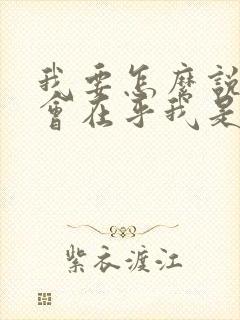 我要怎麼說
會在乎我是
紫衣渡江